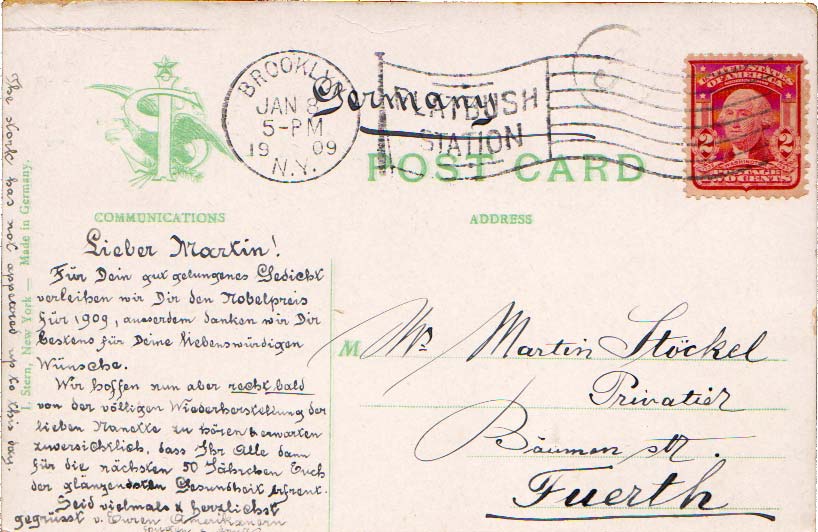 BROOKLYN
JAN 8
5-PM
1909
N.Y.
FLATBUSH
STATION
Germany
UNITED STATES
OF AMERICA
2 2
WASHINGTON
POSTAGE
TWO CENTS
POST CARD
COMMUNICATIONS
ADDRESS
The stork has not appeared up to this day.
I. Stern, New York — Made in Germany.
Lieber Martin!
Für Dein gut gelungenes Gedicht
verleihen wir Dir den Nobelpreis
für 1909, ausserdem danken wir Dir
bestens für Deine liebenswürdigen
Wünsche.
Wir hoffen nun aber recht bald
von der völligen Wiederherstellung der
lieben Nanette zu hören & erwarten
zuversichtlich, dass Ihr Alle dann
für die nächsten 50 Jährchen Euch
der glänzendsten Gesundheit erfreut.
Seid vielmals & herzlichst
gegrüsst v. Euren Amerikanern
M
Mr Martin Stöckel
Privatier
Bäumen str.
Fuerth